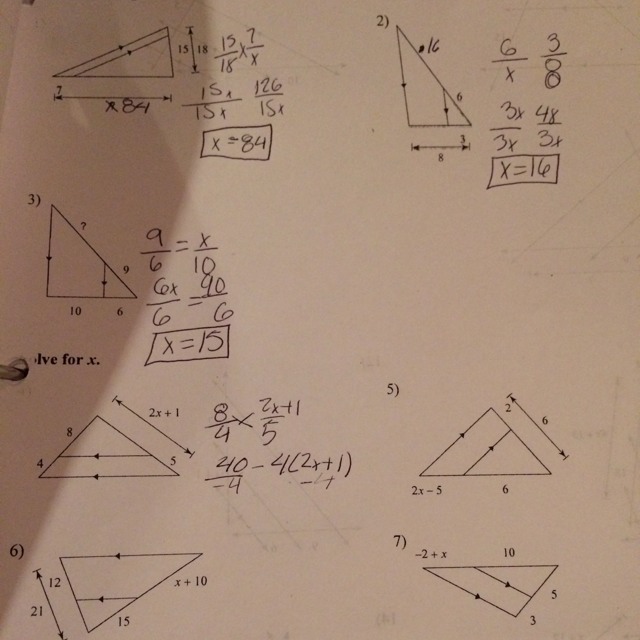 15 18 15/18 x 7/x
7
x 84
15x/15x 126/15x
x = 84
2)
16
6
3
8
6/x 3/8
3x/3x 48/3x
x = 16
3)
?
9
10 6
9/6 = x/10
6x/6 = 90/6
x = 15
lve for x.
8
2x + 1
4 5
8/4 x 2x+1/5
40/-4 - 4(2x+1)/-4
5)
2
6
2x − 5 6
6)
12
21
x + 10
15
7)
−2 + x 10
5
3